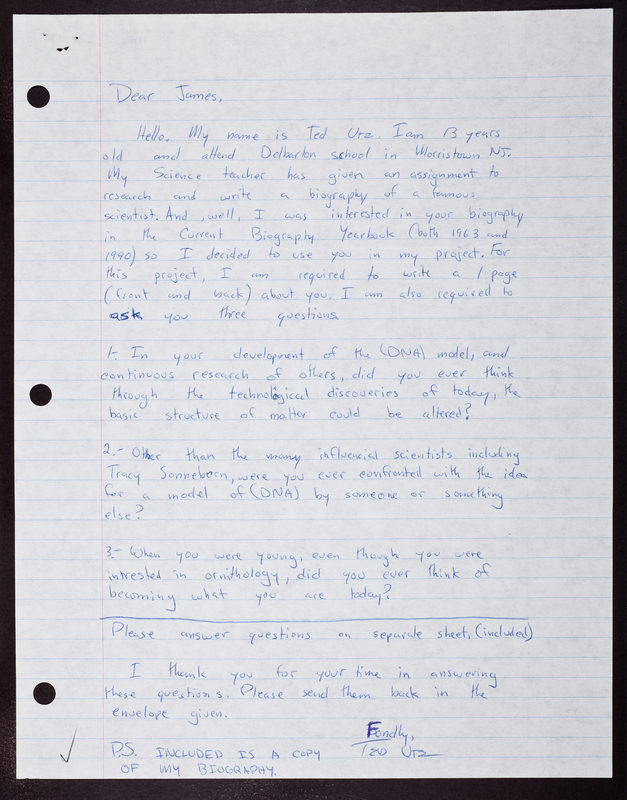 Dear James,
Hello. My name is Ted Utz. I am 13 years
old and attend Delbarton school in Morristown NJ.
My Science teacher has given an assignment to
research and write a biography of a famous
scientist. And, well, I was interested in your biography
in the Current Biography Yearbook (both 1963 and
1990) so I decided to use you in my project. For
this project, I am required to write a 1 page
(front and back) about you. I am also required to
ask you three questions.
1. In your development of the (DNA) model, and
continuous research of others, did you ever think
through the technological discoveries of today, the
basic structure of matter could be altered?
2.- Other than the many influencial scientists including
Tracy Sonneborn, were you ever confronted with the idea
for a model of (DNA) by someone or something
else?
3.- When you were young, even though you were
intrested in ornithology, did you ever think of
becoming what you are today?
Please answer questions on separate sheet, (included)
I thank you for your time in answering
these questions. Please send them back in the
envelope given.
Fondly,
Ted Utz
P.S. INCLUDED IS A COPY
OF MY BIOGRAPHY.